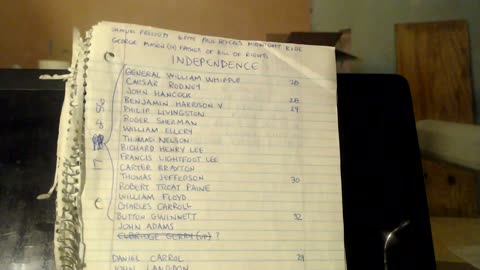 SAMUEL PRESCOTT RODE PAUL REVERE'S MIDNIGHT RIDE
GEORGE MASON (IV) FATHER OF BILL OF RIGHTS
INDEPENDENCE
GENERAL WILLIAM WHIPPLE 28
CAESAR RODNEY
JOHN HANCOCK
BENJAMIN HARRISON V 28
PHILIP LIVINGSTON 29
ROGER SHERMAN
WILLIAM ELLERY
THOMAS NELSON
RICHARD HENRY LEE
FRANCIS LIGHTFOOT LEE
CARTER BRAXTON
THOMAS JEFFERSON 30
ROBERT TREAT PAINE
WILLIAM FLOYD
CHARLES CARROLL
BUTTON GWINNETT 32
JOHN ADAMS
ELBRIDGE GERRY (VP) ?
DANIEL CARROL 29
JOHN LANGDON